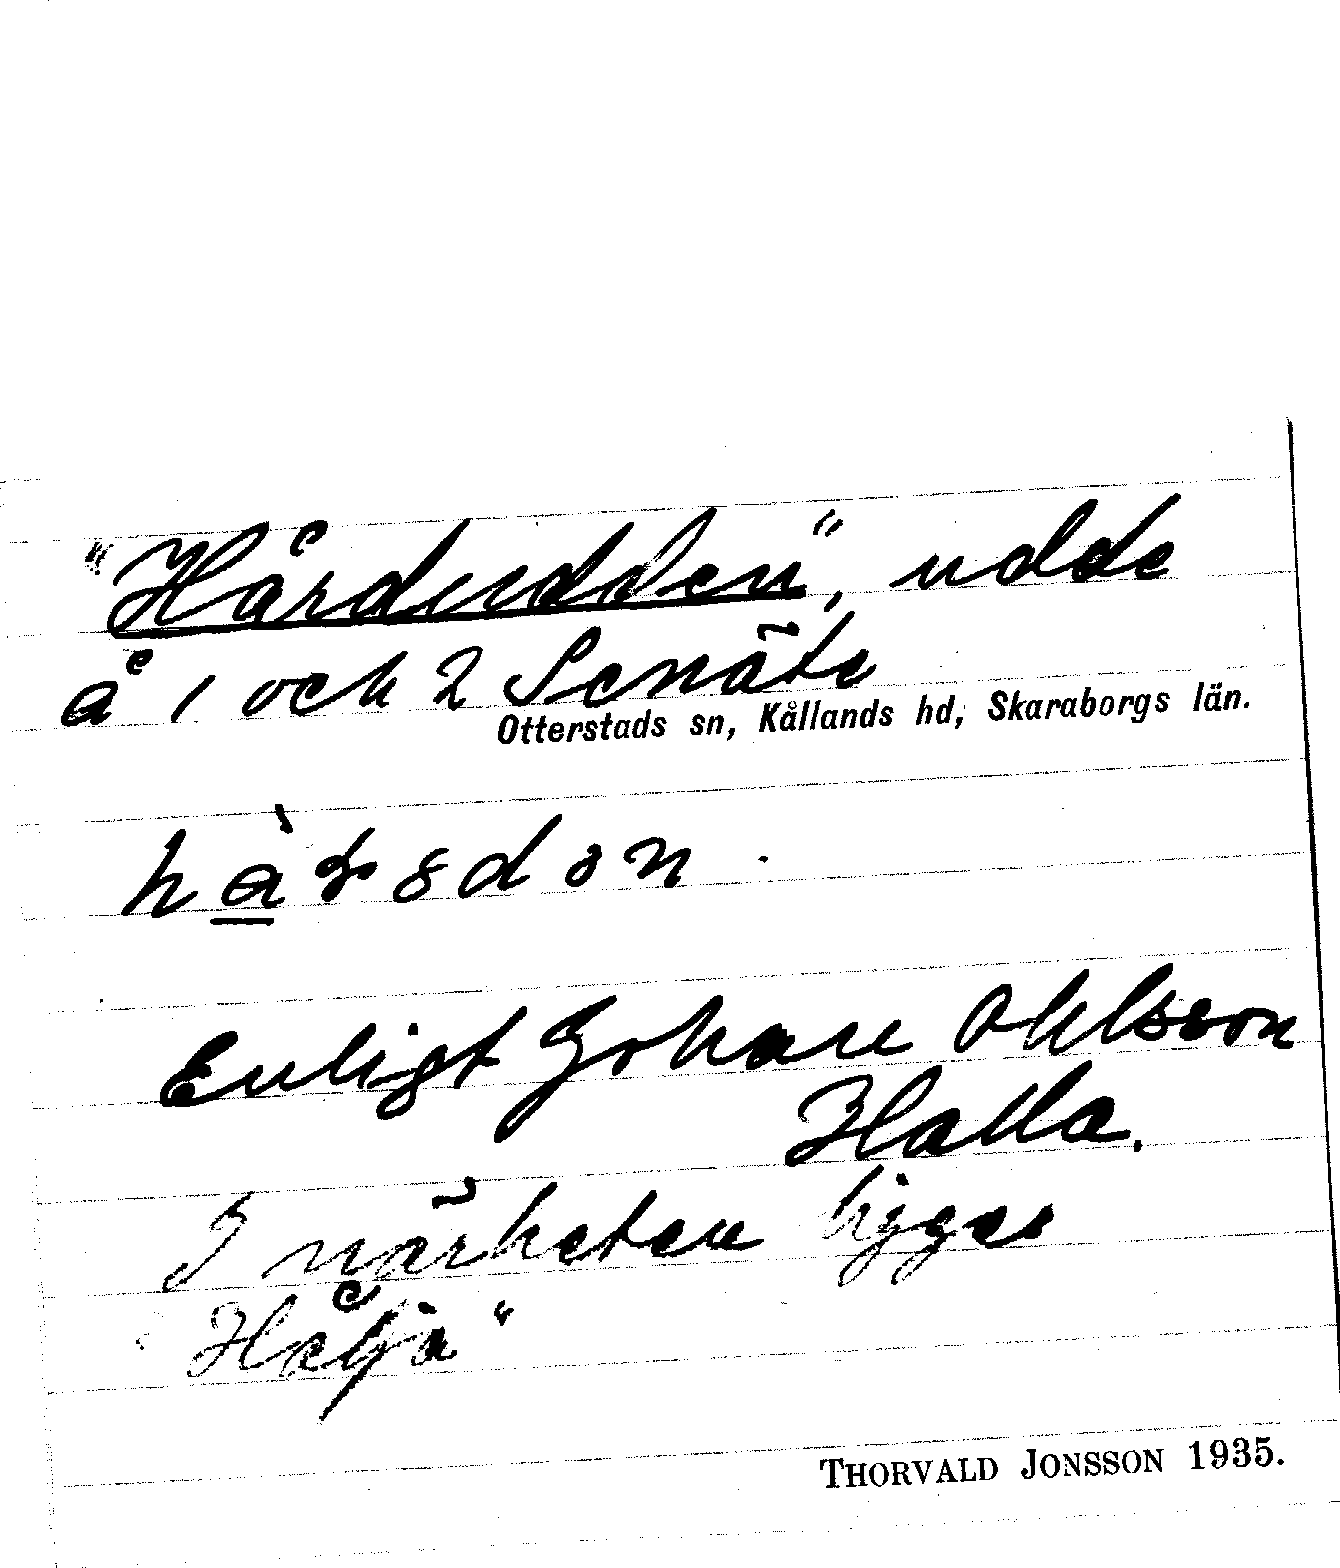 "Hårdudden", udde
å 1 och 2 Senäte
Otterstads sn, Kållands hd, Skaraborgs län.
Enligt Johan Ohlsson
Halla.
I närheten ligger
THORVALD JONSSON 1935.